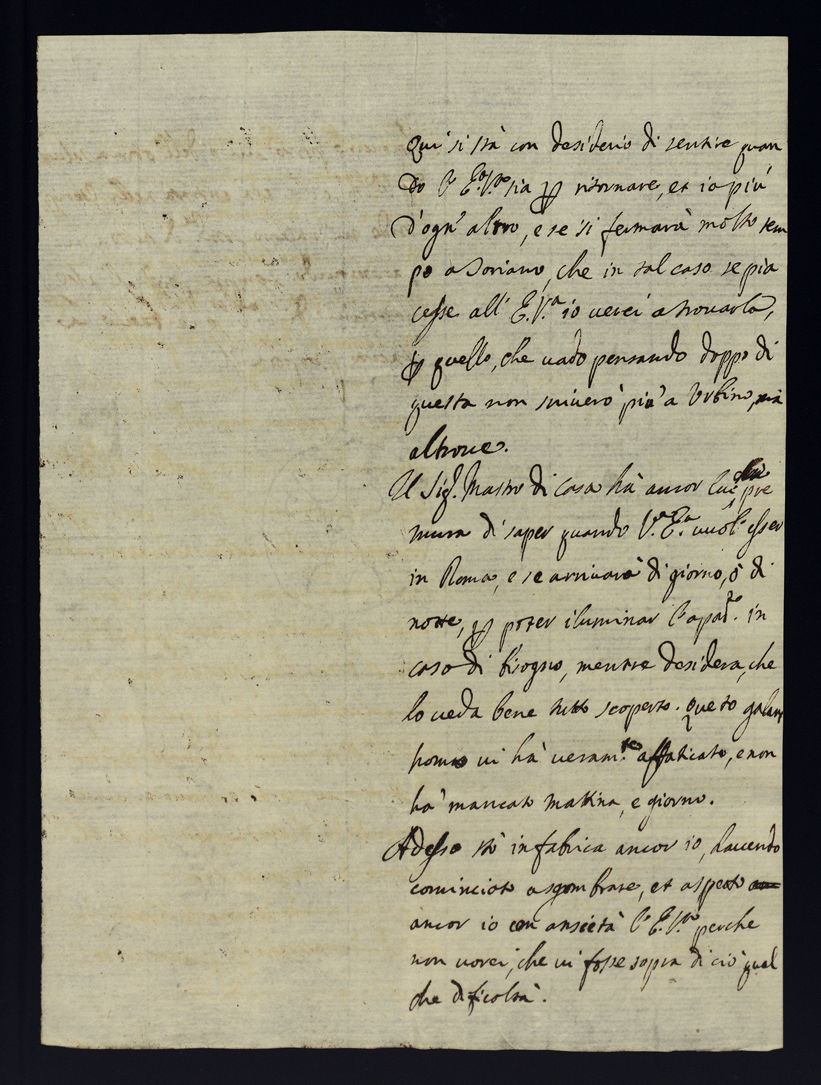 Qui si stà con desiderio di sentire quan
do l'E.V. sia ꝑ ritornare, et io più
d'ogn' altro, e se si fermarà molto tem
po a Soriano, che in tal caso se pia
cesse all' E.V.ª io verei a trovarla,
ꝑ quello, che vado pensando doppo di
questa non scriverò più a Urbino, mà
altrove.
Il Sig.r Mastro di Casa hà ancor lui pre
mura di saper quando V.ª E.ª vuol esser
in Roma, e se arrivarà di giorno, ò di
notte, ꝑ poter iluminar l'apad.º in
caso di bisogno, mentre desidera, che
lo veda bene tutto scoperto. Questo galant
homo vi hà veram.te affaticato, e non
hà mancato mattina, e giorno.
Adesso stò in fabrica ancor io, havendo
cominciato a sgombrare, et aspetto
ancor io con ansietà l'E.V.ª perche
non vorei, che vi fosse sopra di ciò qual
che dificoltà.